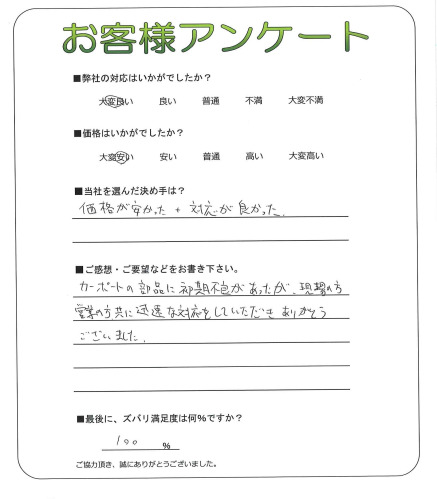 お客様アンケート
■弊社の対応はいかがでしたか？
大変良い 良い 普通 不満 大変不満
■価格はいかがでしたか？
大変安い 安い 普通 高い 大変高い
■当社を選んだ決め手は？
価格が安かった + 対応が良かった.
■ご感想・ご要望などをお書き下さい。
カーポートの部品に初期不良があったが、現場の方
営業の方共に迅速な対応をしていただきありがとう
ございました.
■最後に、ズバリ満足度は何％ですか？
100 ％
ご協力頂き、誠にありがとうございました。